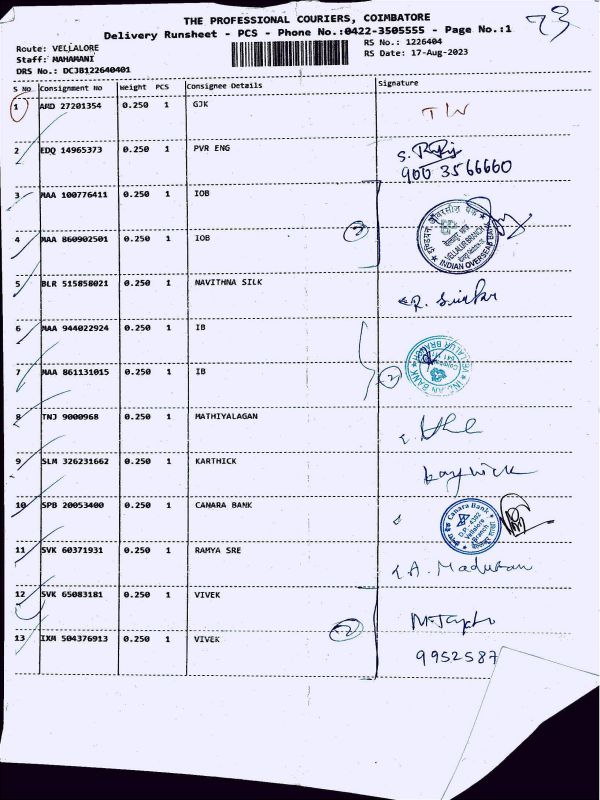 THE PROFESSIONAL COURIERS, COIMBATORE
Delivery Runsheet - PCS - Phone No.:0422-3505555 - Page No.:1
Route: VELLALORE
RS No.: 1226404
Staff: MAHAMANI
RS Date: 17-Aug-2023
DRS No.: DCJB122640401
S No Consignment No Weight PCS Consignee Details Signature
1 ARD 27201354 0.250 1 GJK
2 EDQ 14965373 0.250 1 PVR ENG
900 3566660
3 MAA 100776411 0.250 1 IOB
VELLALUR BRANCH
INDIAN OVERSEAS BANK
4 MAA 860902501 0.250 1 IOB
2
5 BLR 515858021 0.250 1 NAVITHNA SILK
6 MAA 944022924 0.250 1 IB
VELLALUR BRANCH
INDIAN BANK
7 MAA 861131015 0.250 1 IB
2
8 TNJ 9000968 0.250 1 MATHIYALAGAN
9 SLM 326231662 0.250 1 KARTHICK
10 SPB 20053400 0.250 1 CANARA BANK
Canara Bank
D.P.-4392
Vellalore
Branch
11 SVK 60371931 0.250 1 RAMYA SRE
12 SVK 65083181 0.250 1 VIVEK
13 IXM 504376913 0.250 1 VIVEK
2
9952587